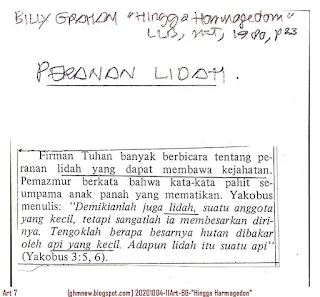 BILLY GRAHAM "Hingga Harmagedon"
LLB, 1980, p23
PERANAN LIDAH.
Firman Tuhan banyak berbicara tentang pe-
ranan lidah yang dapat membawa kejahatan.
Pemazmur berkata bahwa kata-kata pahit se-
umpama anak panah yang mematikan. Yakobus
menulis: "Demikianlah juga lidah, suatu anggota
yang kecil, tetapi sangatlah ia membesarkan diri-
nya. Tengoklah berapa besarnya hutan dibakar
oleh api yang kecil. Adapun lidah itu suatu api"
(Yakobus 3:5, 6).
Art 7 [ghmnew.blogspot.com] 20201004-11Art-BG-"Hingga Harmagedon"